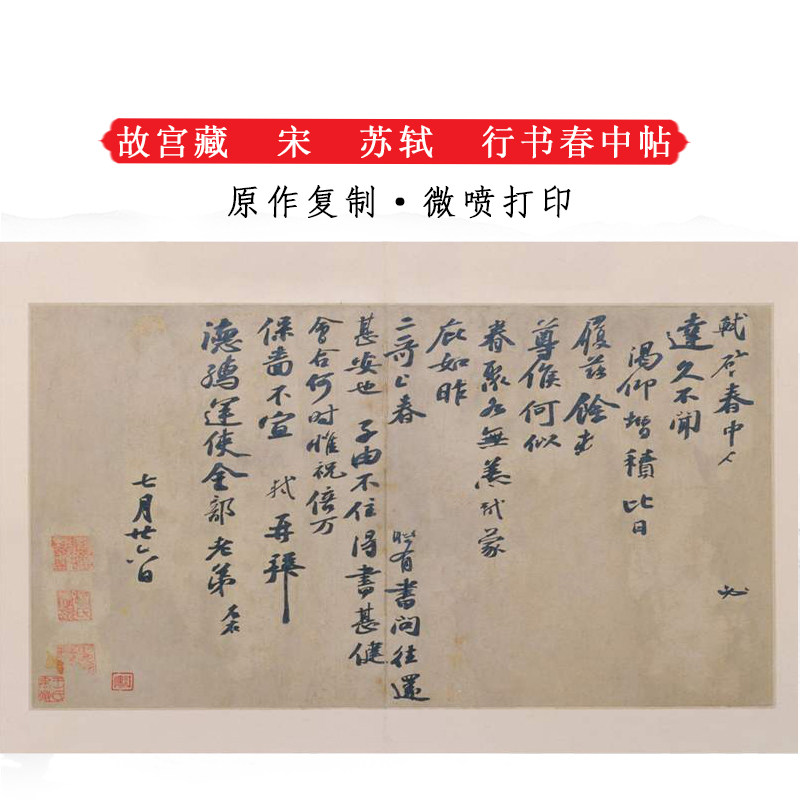 故宫藏 宋 苏轼 行书春中帖
原作复制·微喷打印
軾啓春中人
達久不聞
渴仰增積比日
履茲餘
尊候何似
眷聚各無恙軾蒙
庇如昨
二哥上春 有書問往還
甚安也 子由不住得書甚健
會合何時惟祝倍万
保嗇不宣 軾再拜
德孺運使金部老弟
七月廿六日